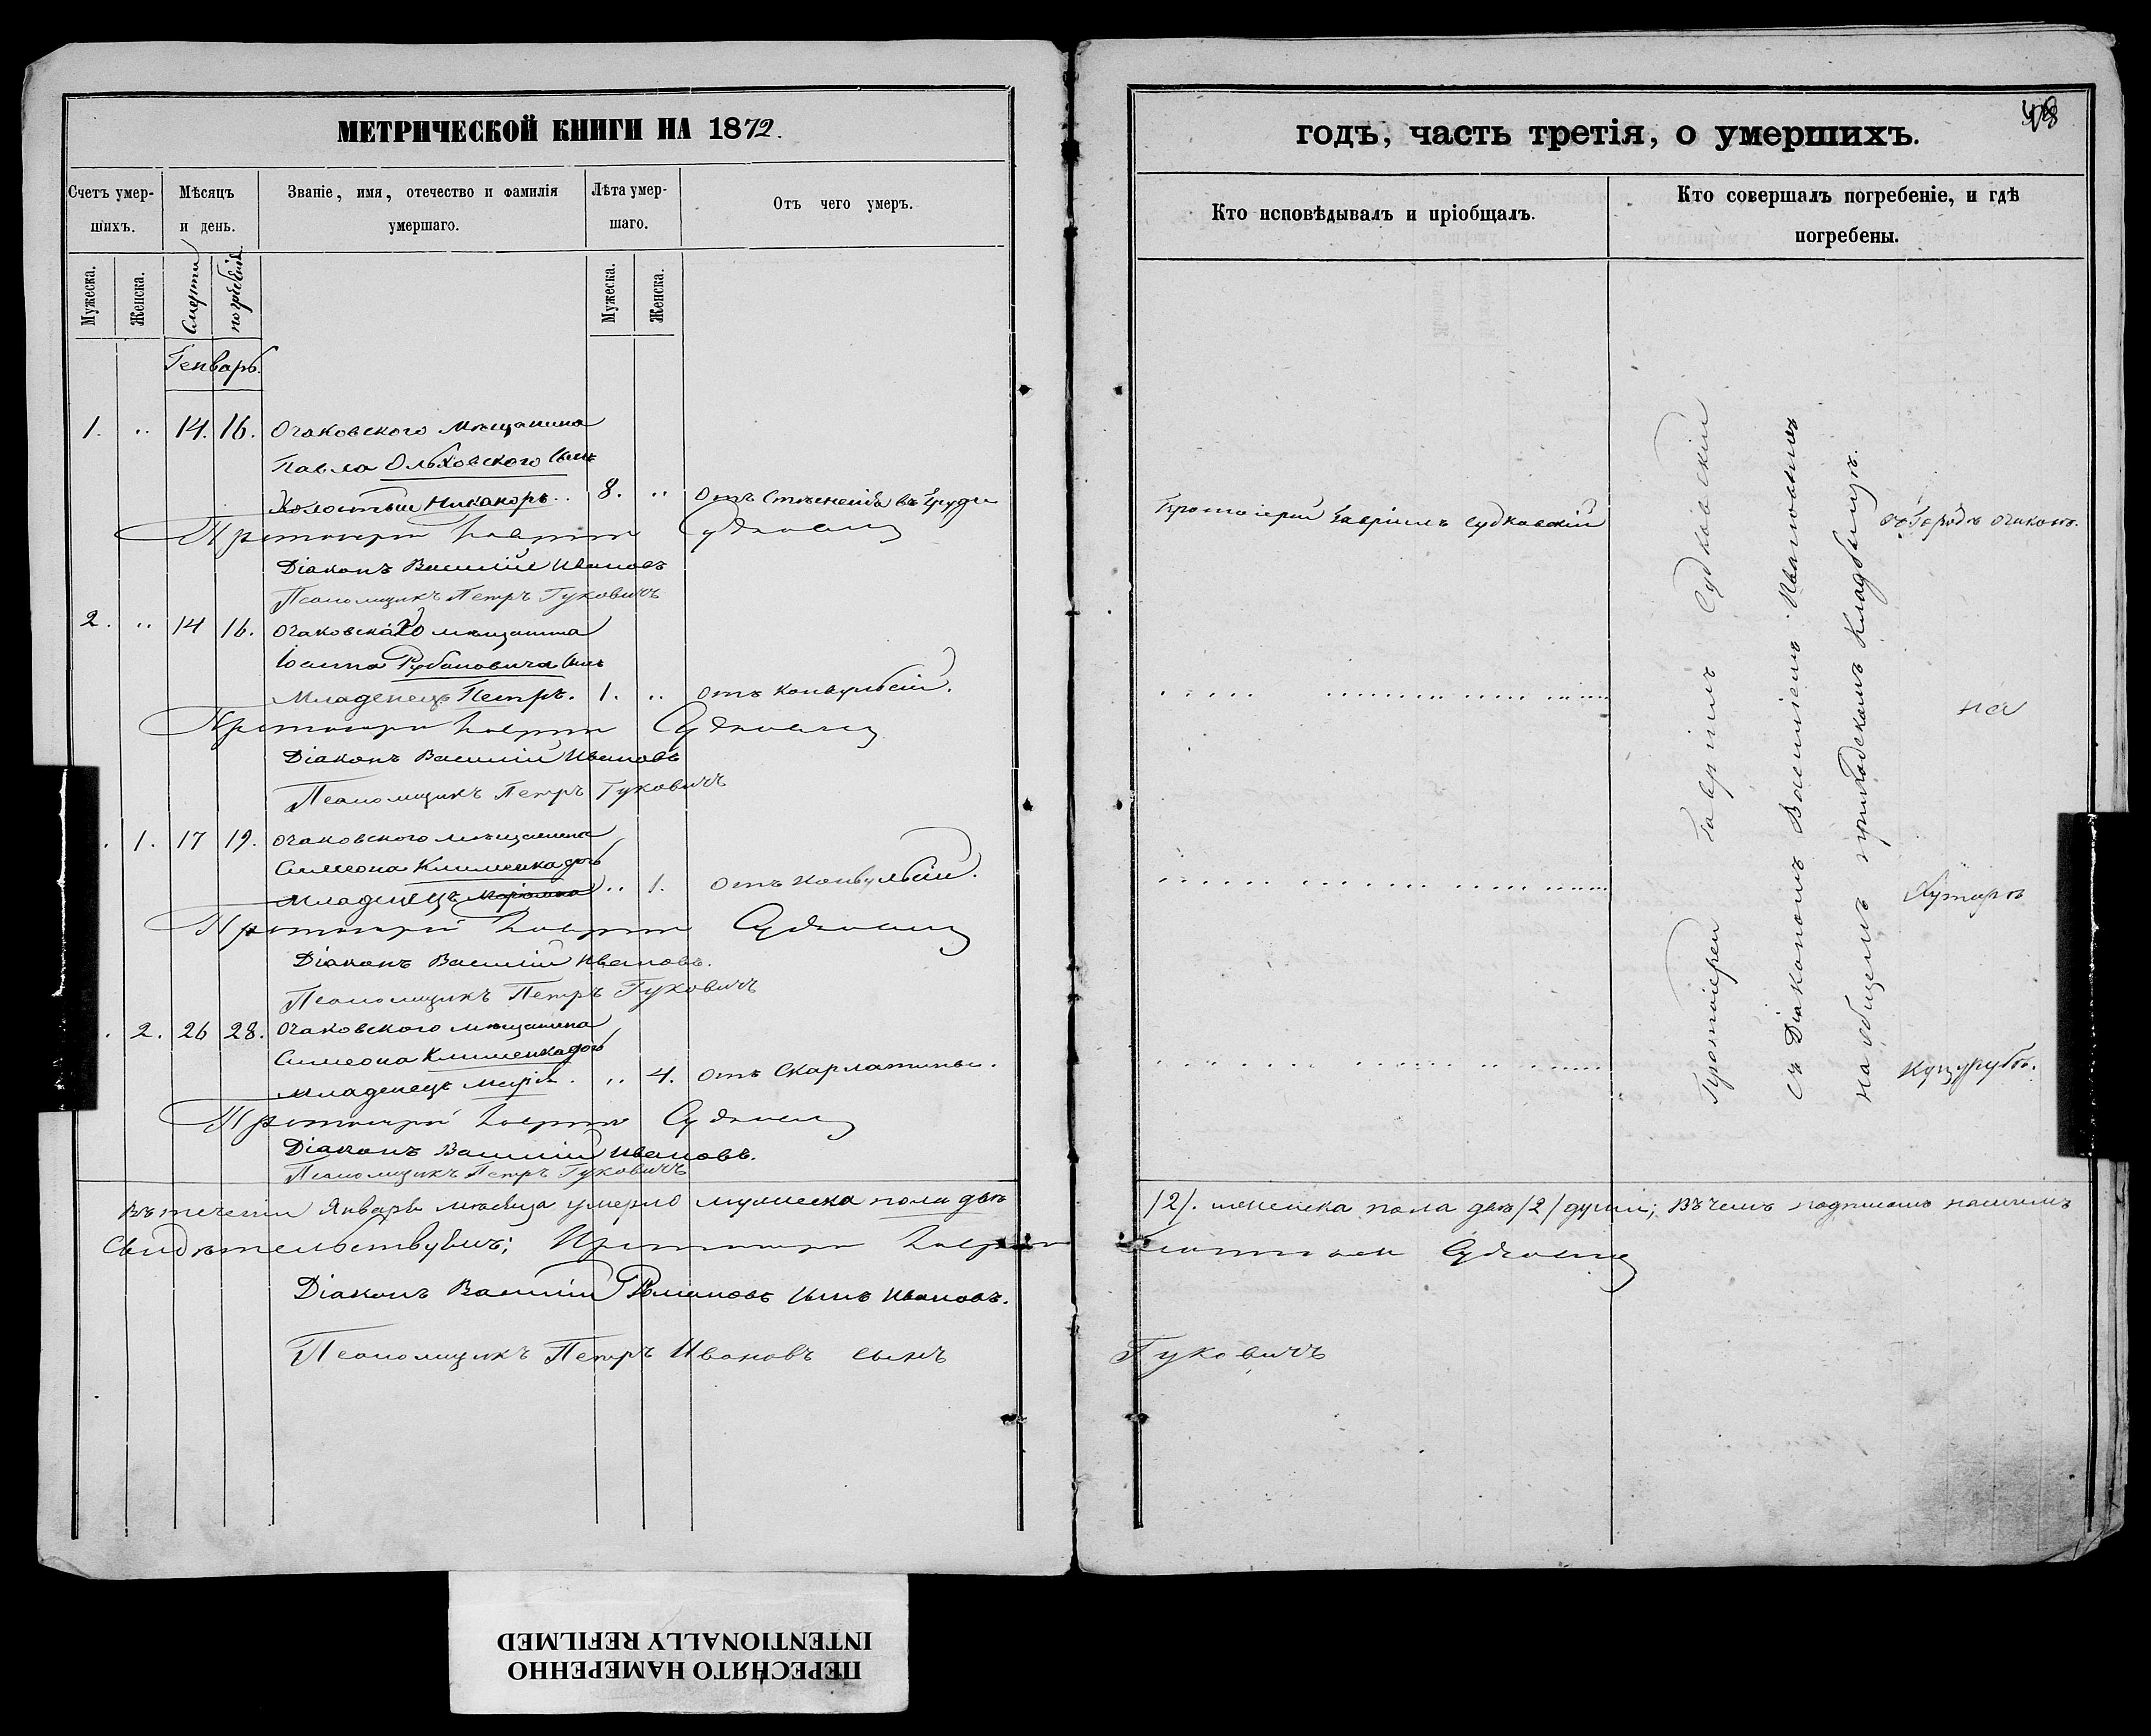 МЕТРИЧЕСКОЙ КНИГИ НА 1872.
Счетъ умершихъ.
Мѣсяцъ и день.
Званіе, имя, отечество и фамилія умершаго.
Лѣта умершаго.
Отъ чего умеръ.
Мужеска.
Женска.
Смерти
погребенія
Мужеска.
Женска.
Генварь.
1. „ 14. 16. Очаковского мѣщанина
Павла Ольховского сынъ
Холостый Никаноръ. 8. „ Отъ Стѣсненія въ груди
Протоіерей Гавріилъ Судковскій
Діаконъ Василій Ивановъ
Псаломщикъ Петръ Гуковичъ
2. „ 14 16. Очаковского мѣщанина
Іоанна Рубановича сынъ
Младенецъ Петръ. 1. „ Отъ конвульсій.
Протоіерей Гавріилъ Судковскій
Діаконъ Василій Ивановъ
Псаломщикъ Петръ Гуковичъ
. 1. 17 19. Очаковского мѣщанина
Симеона Клименка дочь
Младенецъ „ 1. Отъ конвульсій.
Протоіерей Гавріилъ Судковскій
Діаконъ Василій Ивановъ.
Псаломщикъ Петръ Гуковичъ
. 2. 26 28. Очаковского мѣщанина
Симеона Клименка дочь
Младенецъ Марія. „ 4. Отъ Скарлатины.
Протоіерей Гавріилъ Судковскій
Діаконъ Василій Ивановъ.
Псаломщикъ Петръ Гуковичъ
Въ теченіи Января мѣсяца умерло мужеска пола двѣ
Свидѣтельствуемъ; Протоіерей Гавріилъ
Діаконъ Василій Романовъ сынъ Ивановъ.
Псаломщикъ Петръ Ивановъ сынъ
годъ, часть третія, о умершихъ.
Кто исповѣдывалъ и пріобщалъ.
Кто совершалъ погребеніе, и гдѣ погребены.
Протоіерей Гавріилъ Судковскій
Протоіерей Гавріилъ Судковскій
съ Діакономъ Василіемъ Ивановымъ
на общемъ приходскомъ кладбищѣ.
въ Городѣ Очаковѣ.
на
Хуторѣ
Куцурубѣ.
/2/. женска пола двѣ /2/ души; въ чемъ подписомъ нашимъ
Судковскій
Гуковичъ
ПЕРЕСНЯТО НАМЕРЕННО
INTENTIONALLY REFILMED